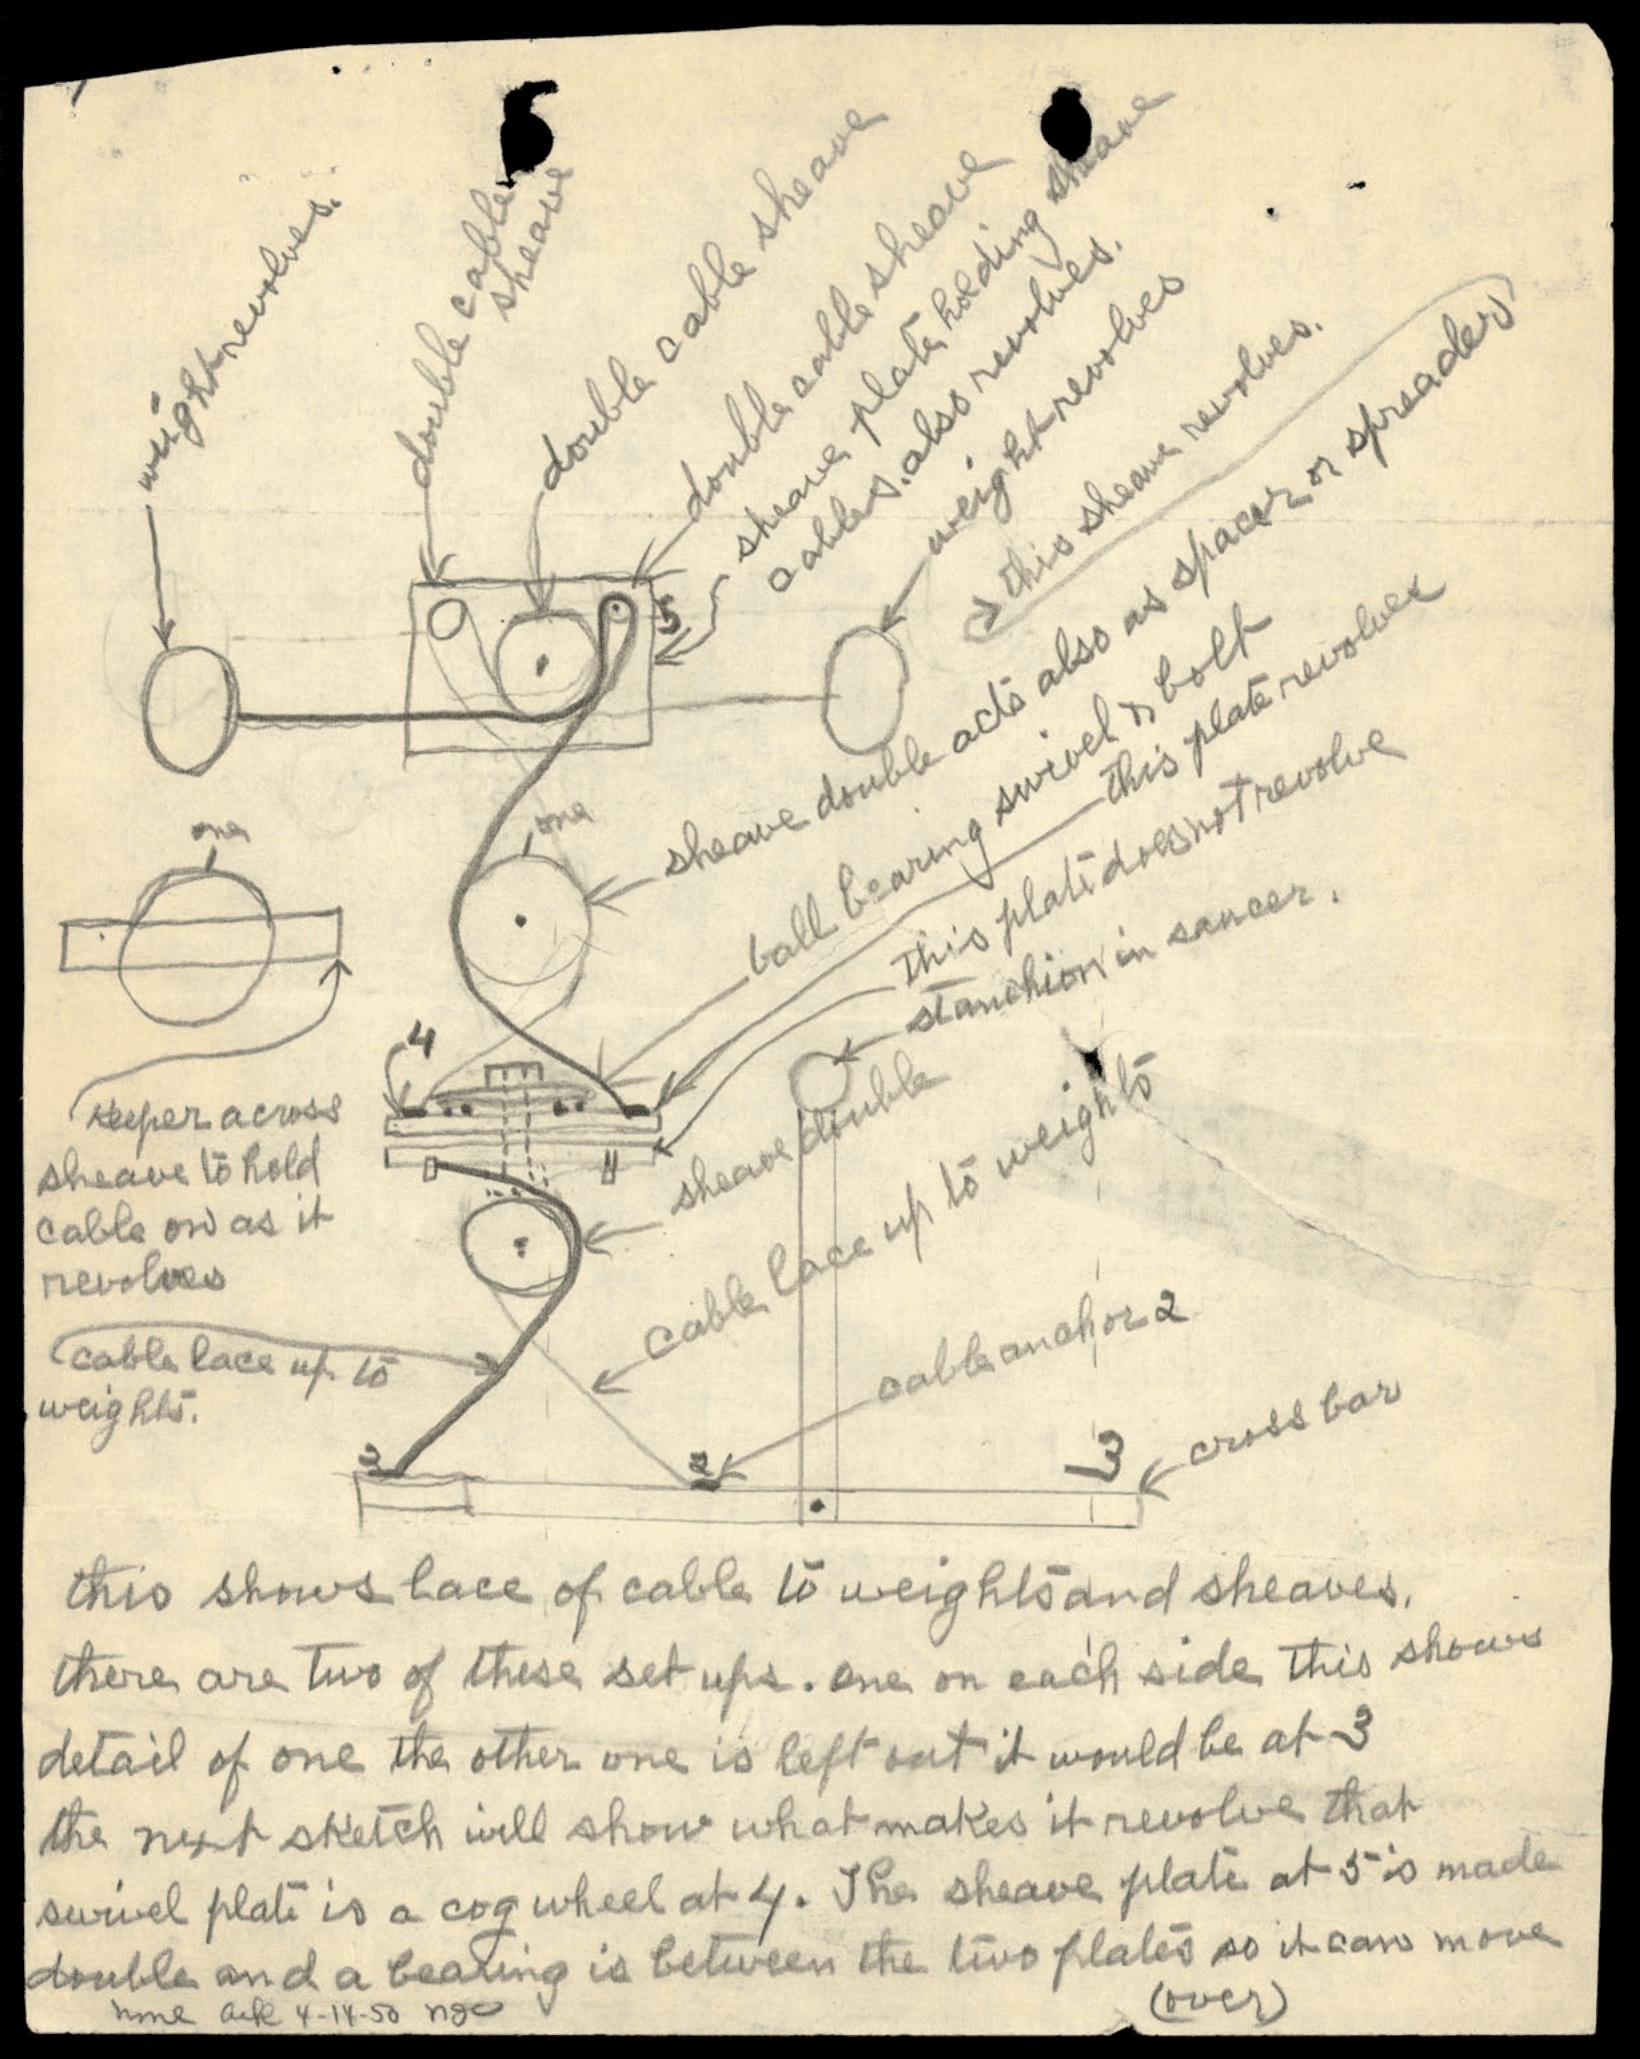 weight revolves.
double cable
sheave
double cable sheave
double cable sheave
sheave plate holding sheave
cables. also revolves.
weight revolves
this sheave revolves.
5
sheave double acts also as spacer or spreader
ball bearing swivel & bolt
this plate revolves
this plate does not revolve
stanchion in saucer.
one
one
4
keeper across
sheave to hold
cable on as it
revolves
sheave double
cable lace up to weights
cable lace up to
weights.
cable anchor 2
cross bar
2
2
3
this shows lace of cable to weights and sheaves.
there are two of these set ups. one on each side this shows
detail of one the other one is left out it would be at 3
the next sketch will show what makes it revolve that
swivel plate is a cog wheel at 4. The sheave plate at 5 is made
double and a bearing is between the two plates so it can move
(over)
4-14-50